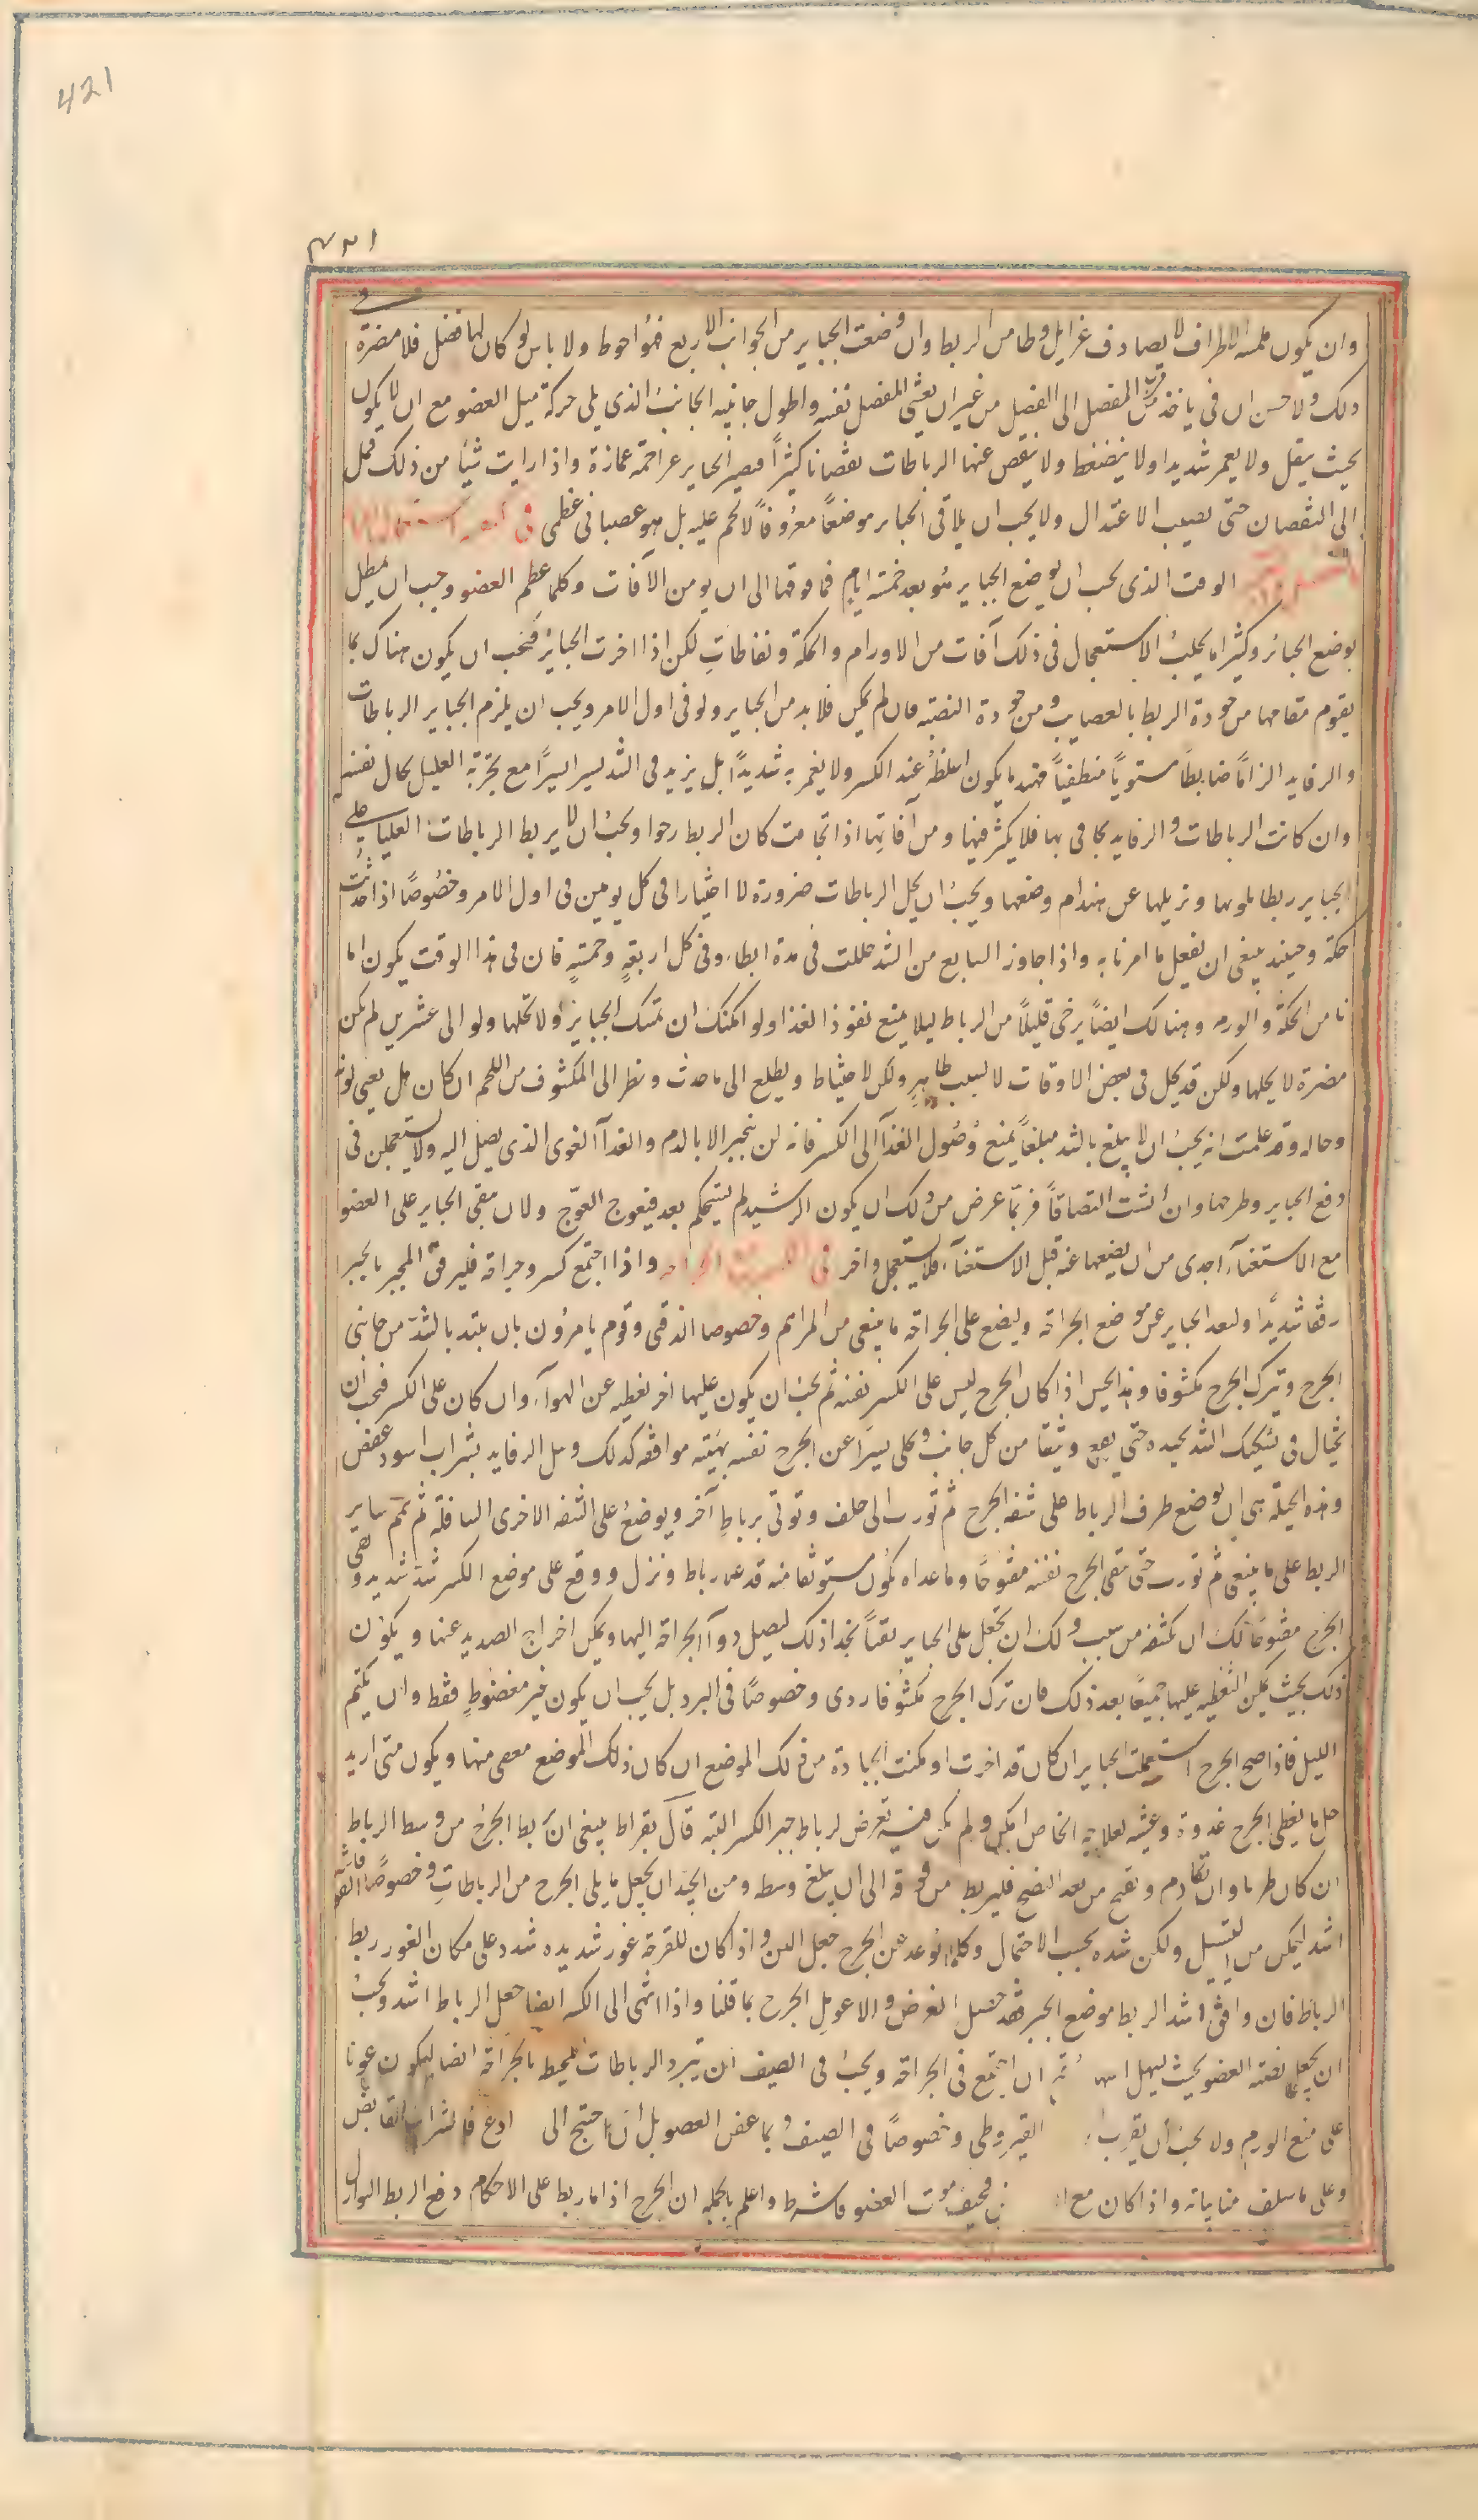 421
۴۲۱
وان يكون ملمسه الاطراف لا يصادف غرايل وطا من الربط وان وضعت الجباير من الجوانب الاربع فهو احوط ولا باس لو كان لها فضل فلا مضرة فى
ذلك ولا حسن ان فى ياخذ من قرب المفصل الى الفصل من غير ان يغشى المفصل نفسه واطول جانبيه الجانب الذى يلى حركة ميل العضو مع ان لا يكون
بحيث يثقل ولا يغمر شديدا ولا ينضغط ولا ينقص عنها الرباطات نقصانا كثيرًا فيصير الجباير غمازة واذا رايت شيا من ذلك فمل
الى النقصان حتى يصيب الاعتدال ولا يجب ان يلاقى الجباير موضعًا معروفًا لا لحم عليه بل هو عصبانى عظمى فى
الوقت الذى يجب ان يوضع الجباير هو بعد خمسة ايام فما فوقها الى ان يومن الآفات وكلما عظم العضو وجب ان يبطل
بوضع الجبائر وكثيرا ما يجلب الاستعجال فى ذلك آفات من الاورام والحكة ونفاطاتٍ لكن اذا اخرت الجبائر فيجب ان يكون هناك بما
يقوم مقامها من جودة الربط بالعصايب ومن جودة النصبة فان لم يكن فلا بد من الجباير ولو فى اول الامر ويجب ان يلزم الجباير الرباطات
والرفايد الزامًا ضابطًا مستويًا منطفيًا فهندما يكون اغلظه عند الكسر ولا يغمر به شديدًا بل يزيد فى الشد يسيرا يسيرًا مع تجربة العليل بحال نفسه
وان كانت الرباطات والرفايد يجافى بها فلا يكثر فيها ومن آفاتها اذا تجامت كان الربط رخوا ويجب ان لا يربط الرباطات العليا على
الجباير ربطا يلويها وتزيلها عن هندام وضعها ويجب ان يحل الرباطات ضرورة لا اختيارا فى كل يومين فى اول الامر وخصوصًا اذا حدثت
حكة وحينئذ ينبغى ان تفعل ما امرنا به واذا جاوز السابع من الشد حللت فى مدة ابطاء وفى كل اربعةٍ وخمسةٍ فان فى هذا الوقت يكون اما
نا من الحكة والورم وهنالك ايضًا يرخى قليلًا من الرباط ليلا يمنع نفوذ الغذا ولو امكنك ان تمسك الجباير ولا تحلها ولو الى عشرين لم يكن
مضرة لا يحلها ولكن قد يحل فى بعض الاوقات لا لسبب ظاهرٍ ولكن لاحتياط ويطلع الى ما حدث ونظر الى المكشوف من اللحم ان كان هل يعى لونه
وحاله وقد علمت انه يجب ان لا يبلغ بالشد مبلغًا يمنع وُصُول الغذآ الى الكسر فانه لن ينجبر الا بالدم والغذآ القوى الذى يصل اليه ولا يستعجلن فى
دفع الجباير وطرحها وان انشت التصاقًا فربما عرض من ذلك ان يكون الرشيد لم يستحكم بعد فيعوج العوّج ولان مقى الجباير على العضوا
مع الاستغناء اجدى من ان يضعها عنه قبل الاستغنآء فلا يستعجل واخر فى واذا اجتمع كسر وجراحة فليرفق المجبر بالجبر
رفقًا شديدًا ولبعد الجباير عن موضع الجراحة وليضع على الجراحة ما ينبغى من المراهم وخصوصا الذفتى وقوم يامرُون بان يبتد بالشد من جانبى
الجرح ويترك الجرح مكشوفا وهذا يحسن اذا كان الجرح ليس على الكسر نفسه ثم يجب ان يكون عليها اخر يغطيه عن الهوآء وان كان على الكسر فيجب ان
يحتال فى تشكيك الشد بحيده حتى يقع وثيقا من كل جانب وكلى يسيرًا عن الجرح نفسه بهيئته موافقه كذلك وبل الرفايد بشراب اسود عفص
وهذه الحيلة هى ان يوضع طرف الرباط على شفة الجرح ثم تورب الى خلف وتوتى برباط آخر ويوضع على الشفة الاخرى السافلة ثم يتمم ساير
الربط على ما ينبغى ثم تورب حتى يبقى الجرح نفسه مفتوحًا وما عداه يكون مستوثقا منه قد عن رباط ونزل ووقع على موضع الكسر شد شديد وبقى
الجرح مفتوحًا لك ان تكشفه من سبب ولك ان تجعل على الجباير ثقبًا بحذا ذلك ليصل دوآ الجراحة اليها ويمكن اخراج الصديد عنها ويكون
ذلك بحيث يمكن التغطيه عليها جميعًا بعد ذلك فان ترك الجرح مكشوفا ردى وخصوصًا فى البرد بل يجب ان يكون غير مضغوطٍ فقط وان يكتم
الليل فاذا صح الجرح استعملت الجباير ان كان قد اخرت او مكنت الجبادة من ذلك الموضع ان كان ذلك الموضع معفى منها ويكون متى اريد
حل ما يغطى الجرح غدوة وعشيه لعلاجه الخاص امكن ولم يكن فيه تعرض لرباط جبر الكسر البته قال بقراط ينبغى ان يربط الجرح من وسط الرباط
ان كان طريا وان تقادم وتقيح من بعد النضج فليربط من فوقه الى ان يبلغ وسطه ومن الجيد ان يجعل ما يلى الجرح من الرباطات وخصوصًا فاشته
اشد ليمكن من السيل ولكن شده بحسب الاحتمال وكلما توعد عن الجرح جعل الين واذا كان للقرحة غور شديده شدد على مكان الغور ربط
الرباط فان وافق اشد الربط موضع الجبر فقد حصل الغرض والا عومل الجرح بما قلنا واذا انتهى الى الكسر ايضا جعل الرباط اشد ويجب
ان يجعل نصبته العضو بحيث يسهل ان اجتمع فى الجراحة ويجب فى الصيف ان تبرد الرباطات المحيط بالجراحة ايضا ليكون عونا
على منع الورم ولا يجب ان يقرب القيروطى وخصوصًا فى الصيف وبما عفن العضو بل ان احتيج الى ادع فالشراب القابض
وعلى ما سلف منا بيانه واذا كان مع فخيف موت العضو فاشرط واعلم بالجملة ان الجرح اذا ما ربط على الاحكام دفع الربط الوارد